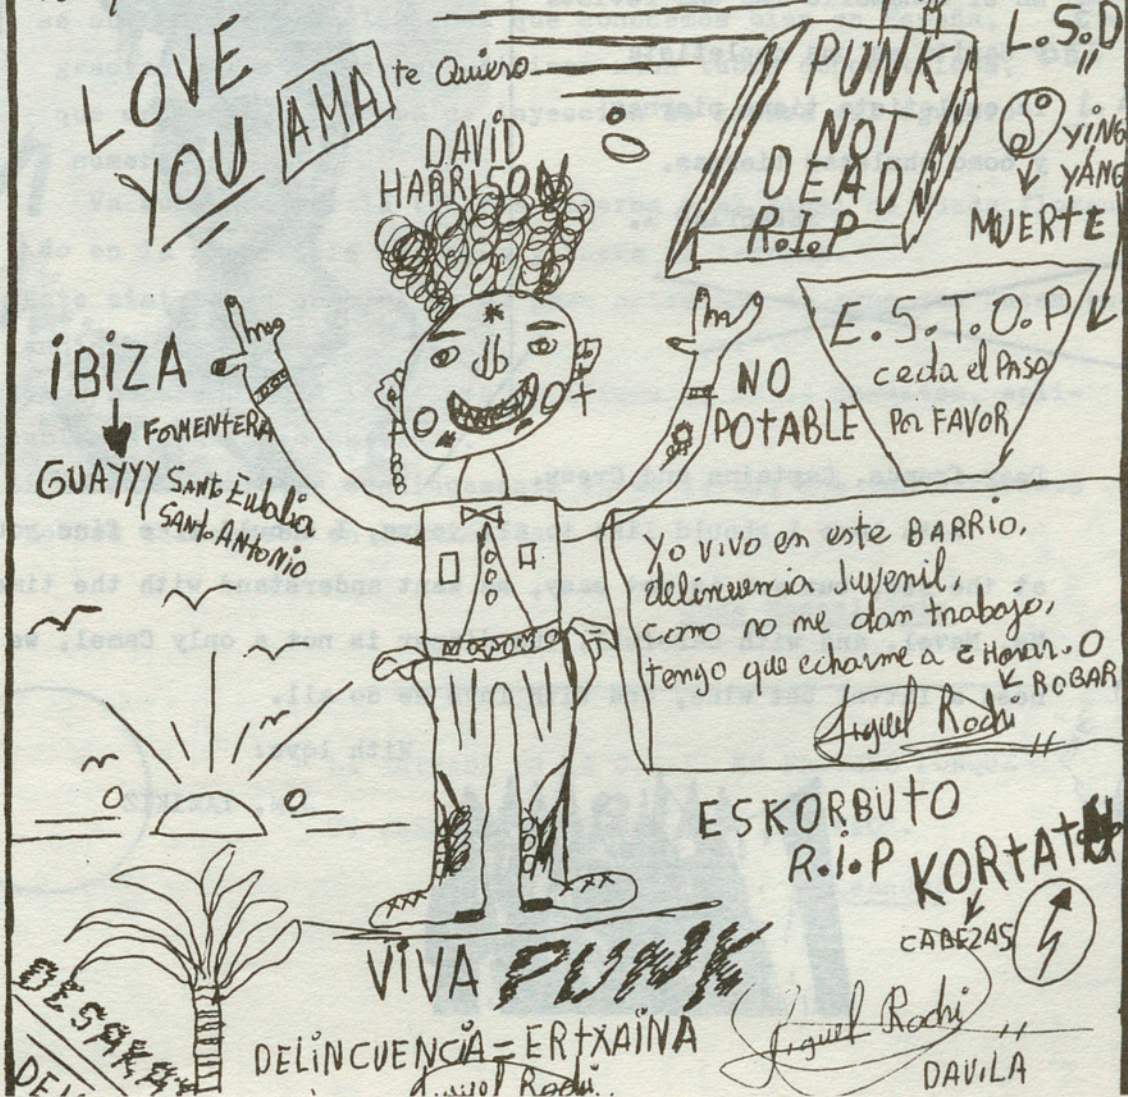 LOVE
YOU
AMA
te Quiero
DAVID
HARRISON
PUNK
NOT
DEAD
R.I.P
L.S.D
YING
YANG
MUERTE
E.S.T.O.P
ceda el PASO
Por FAVOR
NO
POTABLE
IBIZA
FORMENTERA
GUAYYY
Santo Eulalia
SANTO ANTONIO
Yo vivo en este BARRIO,
delincuencia Juvenil,
como no me dan trabajo,
tengo que echarme a
O
ROBAR
Miguel Rochi
ESKORBUTO
R.I.P
KORTATU
CABEZAS
VIVA PUNK
DELINCUENCIA = ERTXAINA
Miguel Rochi
Miguel Rochi
DAVILA